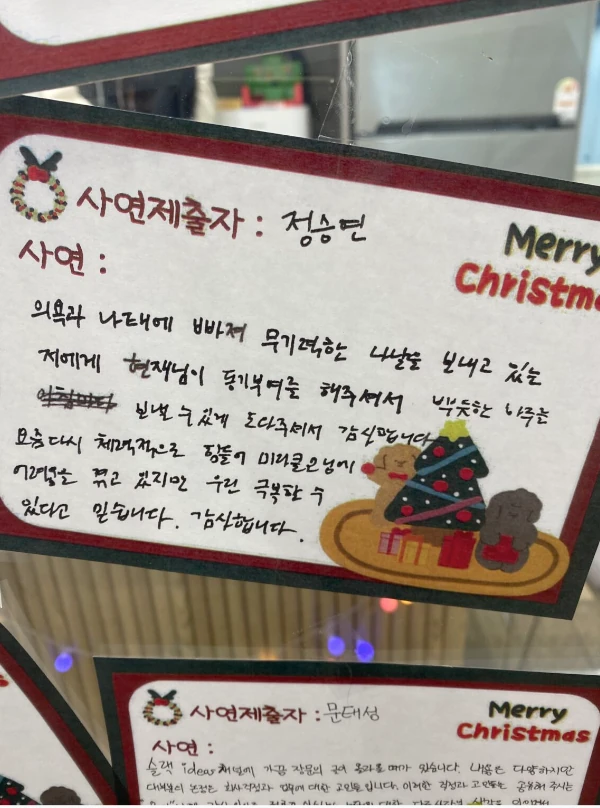 사연제출자 : 정승연
Merry
Christmas
사연 :
의욕과 나태에 빠져 무기력한 나날을 보내고 있는
저에게 현재님이 동기부여를 해주셔서 뿌듯한 하루를
보낼 수 있게 도와주셔서 감사합니다
요즘 다시 체력적으로 힘들어 미라클모닝에
어려움을 겪고 있지만 우린 극복할 수
있다고 믿습니다. 감사합니다.
사연제출자 : 문태성
Merry
Christmas
사연 :
슬랙 idea 채널에 가끔 장문의 글이 올라올 때가 있습니다. 내용은 다양하지만
대부분의 본질은 회사걱정과 업무에 대한 고민들 입니다. 이러한 걱정과 고민들을 공유해 주시는